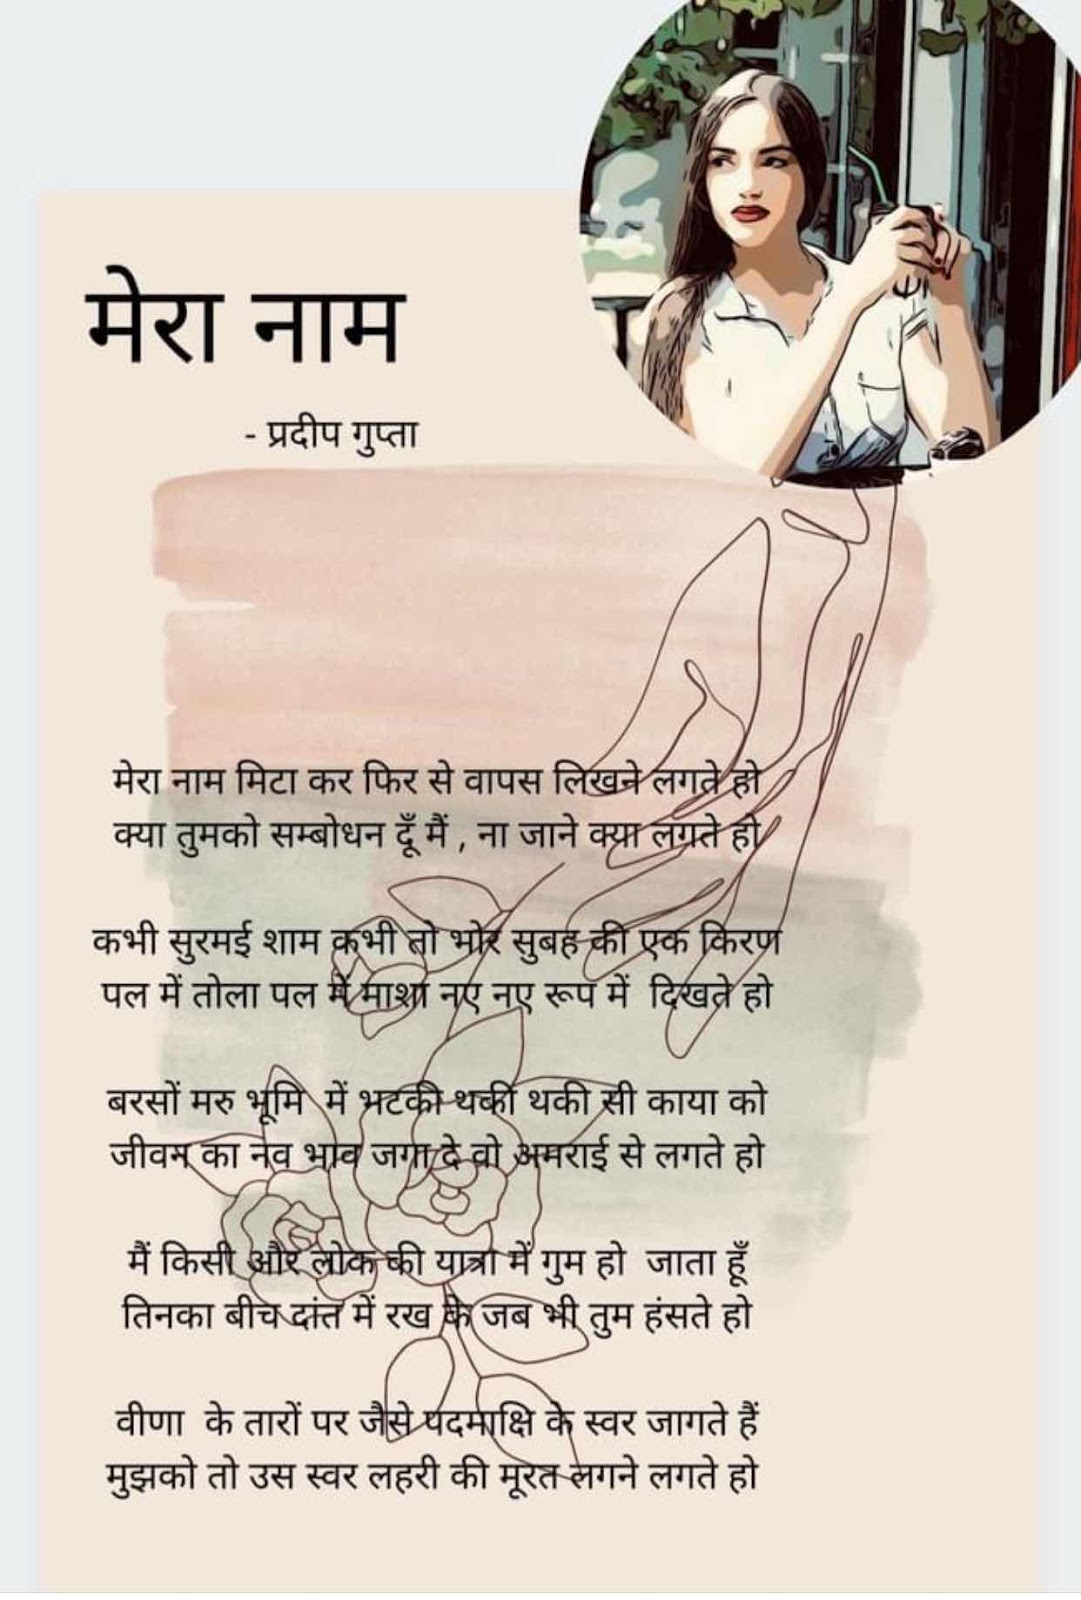 मेरा नाम
- प्रदीप गुप्ता
मेरा नाम मिटा कर फिर से वापस लिखने लगते हो
क्या तुमको सम्बोधन दूँ मैं , ना जाने क्या लगते हो
कभी सुरमई शाम कभी तो भोर सुबह की एक किरण
पल में तोला पल में माशा नए नए रूप में दिखते हो
बरसों मरु भूमि में भटकी थकी थकी सी काया को
जीवन का नव भाव जगा दे वो अमराई से लगते हो
मैं किसी और लोक की यात्रा में गुम हो जाता हूँ
तिनका बीच दांत में रख के जब भी तुम हंसते हो
वीणा के तारों पर जैसे पदमाक्षि के स्वर जागते हैं
मुझको तो उस स्वर लहरी की मूरत लगने लगते हो